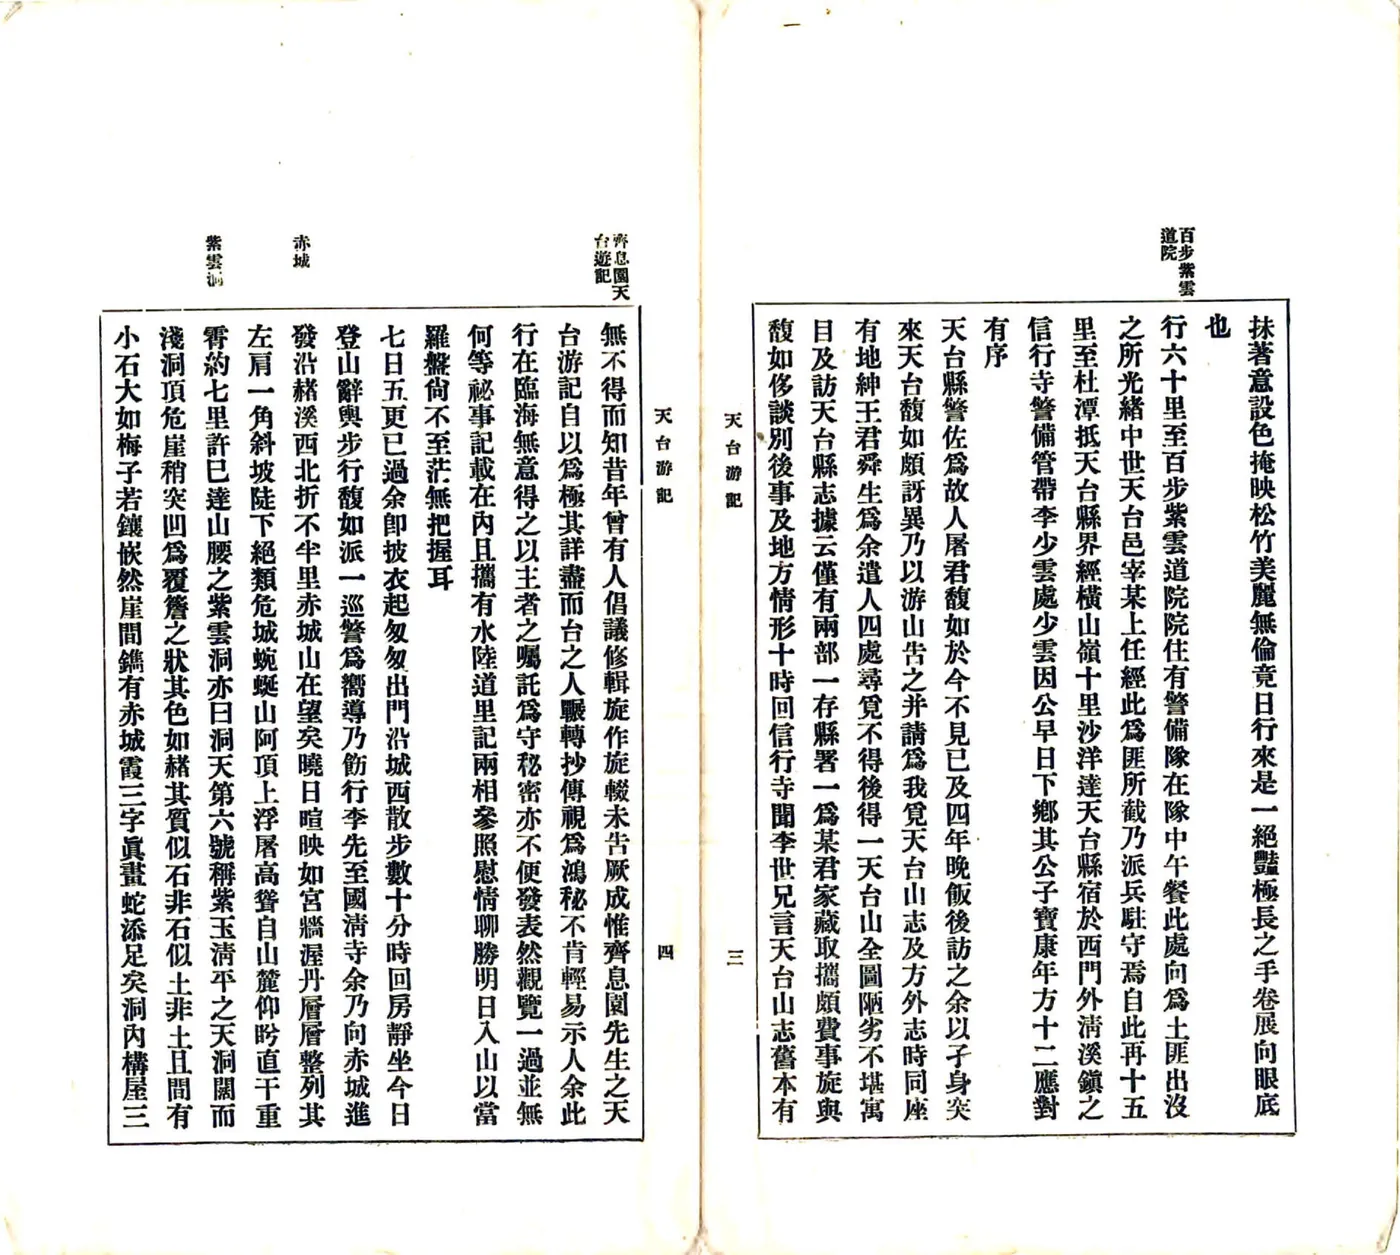 百步紫雲
道院
抹著意設色掩映松竹美麗無倫竟日行來是一絕豔極長之手卷展向眼底
也
行六十里至百步紫雲道院院住有警備隊在隊中午餐此處向爲土匪出沒
之所光緒中世天台邑宰某上任經此爲匪所截乃派兵駐守焉自此再十五
里至杜潭抵天台縣界經橫山嶺十里沙洋達天台縣宿於西門外淸溪鎭之
信行寺警備管帶李少雲處少雲因公早日下鄉其公子寶康年方十二應對
有序
天台縣警佐爲故人屠君馥如於今不見已及四年晚飯後訪之余以孑身突
來天台馥如頗訝異乃以游山吿之并請爲我覓天台山志及方外志時同座
有地紳王君舜生爲余遣人四處尋覓不得後得一天台山全圖陋劣不堪寓
目及訪天台縣志據云僅有兩部一存縣署一爲某君家藏取攜頗費事旋與
馥如侈談別後事及地方情形十時回信行寺聞李世兄言天台山志舊本有
天台游記
三
天台游記
四
齊息園天
台遊記
赤城
紫雲洞
無不得而知昔年曾有人倡議修輯旋作旋輟未吿厥成惟齊息園先生之天
台游記自以爲極其詳盡而台之人輾轉抄傳視爲鴻秘不肯輕易示人余此
行在臨海無意得之以主者之囑託爲守秘密亦不便發表然觀覽一過並無
何等祕事記載在內且攜有水陸道里記兩相參照慰情聊勝明日入山以當
羅盤尙不至茫無把握耳
七日五更已過余卽披衣起匆匆出門沿城西散步數十分時回房靜坐今日
登山辭輿步行馥如派一巡警爲嚮導乃飭行李先至國淸寺余乃向赤城進
發沿赭溪西北折不半里赤城山在望矣曉日暄映如宮牆渥丹層層整列其
左肩一角斜坡陡下絕類危城蜿蜒山阿頂上浮屠高聳自山麓仰盻直干重
霄約七里許已達山腰之紫雲洞亦曰洞天第六號稱紫玉淸平之天洞闊而
淺洞頂危崖稍突凹爲覆簷之狀其色如赭其質似石非石似土非土且間有
小石大如梅子若鑲嵌然崖間鐫有赤城霞三字眞畫蛇添足矣洞內構屋三